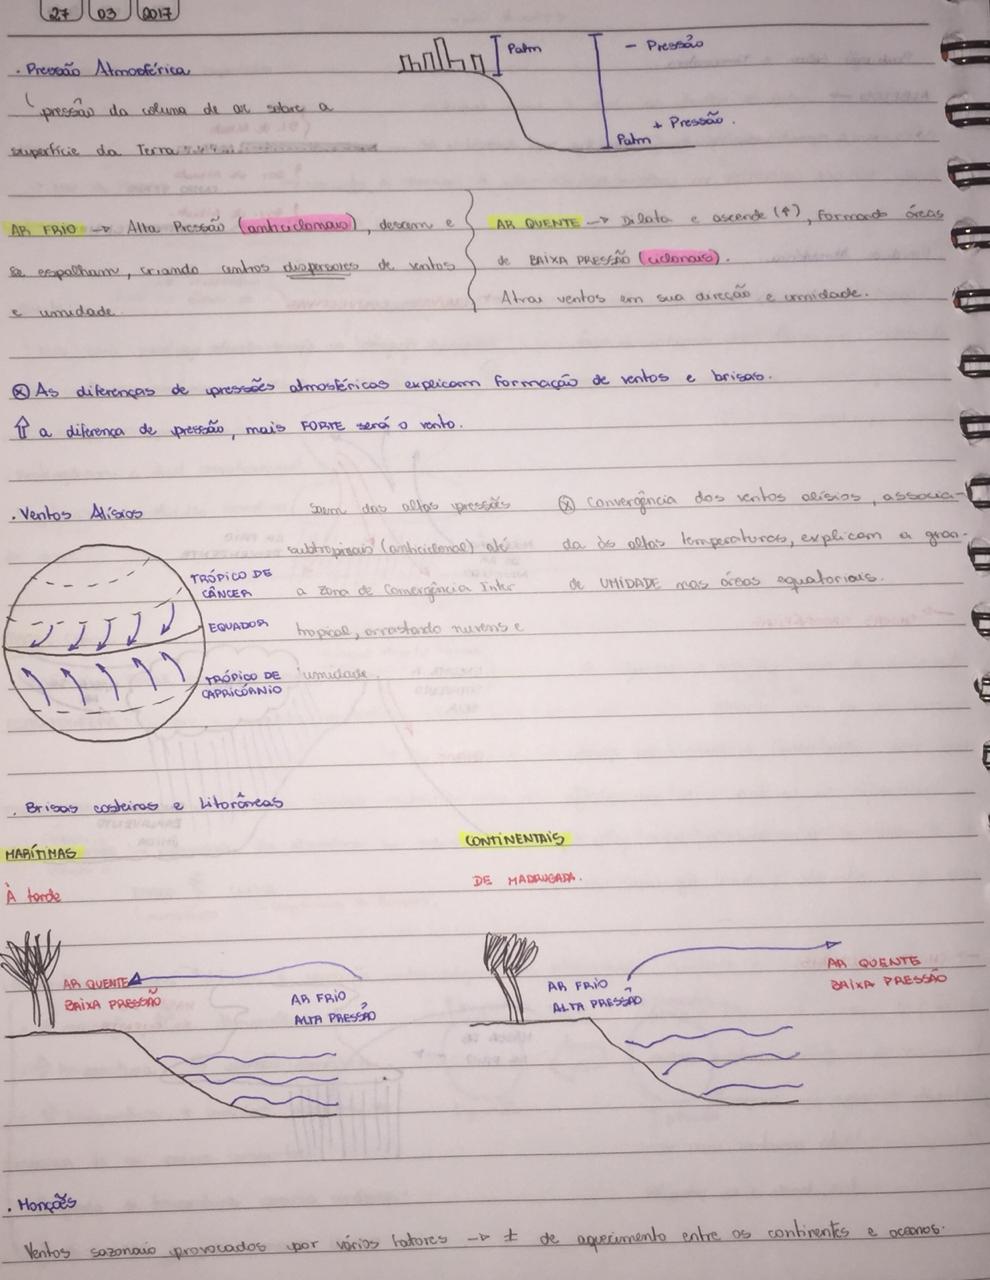 27 03 2017
Patm
- Pressão
. Pressão Atmosférica
pressão da coluna de ar sobre a
+ Pressão.
Patm
superfície da Terra
AR FRIO → Alta Pressão (anticiclonais), descem e
se espalham, criando centros dispersores de ventos
e umidade.
AR QUENTE → Dilata e ascende (↑), formando áreas
de BAIXA PRESSÃO (ciclonais).
Atrai ventos em sua direção e umidade.
⊗ As diferenças de pressões atmosféricas explicam formação de ventos e brisas.
⇧ a diferença de pressão, mais FORTE será o vento.
. Ventos Alísios
TRÓPICO DE
CÂNCER
EQUADOR
TRÓPICO DE
CAPRICÓRNIO
saem das altas pressões
subtropicais (anticiclonal) até
a zona de Convergência Inter
tropical, arrastando nuvens e
umidade.
⊗ Convergência dos ventos alísios, associa-
da às altas temperaturas, explicam a gran-
de UMIDADE nas áreas equatoriais.
. Brisas costeiras e Litorâneas
MARÍTIMAS
À tarde
AR QUENTE
BAIXA PRESSÃO
AR FRIO
ALTA PRESSÃO
CONTINENTAIS
DE MADRUGADA.
AR FRIO
ALTA PRESSÃO
AR QUENTE
BAIXA PRESSÃO
. Monções
Ventos sazonais provocados por vários fatores → ± de aquecimento entre os continentes e oceanos.